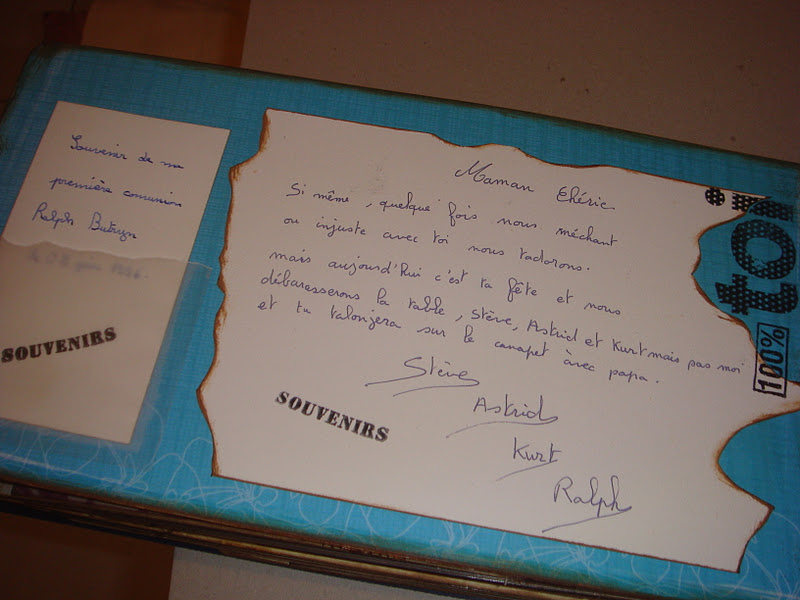 Souvenir de ma
première comunion
Ralph Butruyn
SOUVENIRS
Maman Chérie
Si même, quelque fois nous méchant
ou injuste avec toi nous t'adorons.
mais aujourd'hui c'est ta fête et nous
débarasserons la table, Stève, Astrid et Kurt mais pas moi
et tu talonjera sur le canapet avec papa.
Stève
Astrid
Kurt
Ralph
SOUVENIRS
toi
100%